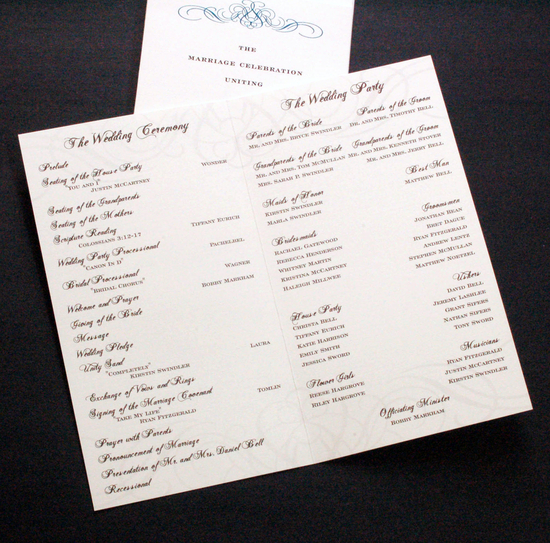 THE
MARRIAGE CELEBRATION
UNITING
The Wedding Ceremony
Prelude
Seating of the House Party WONDER
"YOU AND I" JUSTIN MCCARTNEY
Seating of the Grandparents
Seating of the Mothers
Scripture Reading TIFFANY EURICH
COLOSSIANS 3:12-17
Wedding Party Processional PACHELBEL
"CANON IN D"
Bridal Processional WAGNER
"BRIDAL CHORUS" BOBBY MARKHAM
Welcome and Prayer
Giving of the Bride
Message
Wedding Pledge
Unity Sand LAURA
"COMPLETELY" KIRSTIN SWINDLER
Exchange of Vows and Rings
Signing of the Marriage Covenant TOMLIN
"TAKE MY LIFE" RYAN FITZGERALD
Prayer with Parents
Pronouncement of Marriage
Presentation of Mr. and Mrs. Daniel Bell
Recessional
The Wedding Party
Parents of the Bride Parents of the Groom
MR. AND MRS. BRYCE SWINDLER DR. AND MRS. TIMOTHY BELL
Grandparents of the Bride Grandparents of the Groom
MR. AND MRS. TOM MCMULLAN MR. AND MRS. KENNETH STOVER
MRS. SARAH P. SWINDLER MR. AND MRS. JERRY BELL
Maids of Honor Best Man
KIRSTIN SWINDLER MATTHEW BELL
MARLA SWINDLER
Bridesmaids Groomsmen
RACHAEL GATEWOOD JONATHAN BEAN
REBECCA HENDERSON BRET DAGUE
WHITNEY MARTIN RYAN FITZGERALD
KRISTINA MCCARTNEY ANDREW LENTZ
HALEIGH MILLWEE STEPHEN MCMULLAN
MATTHEW NOETZEL
House Party Ushers
CHRISTA BELL DAVID BELL
TIFFANY EURICH JEREMY LASHLEE
KATIE HARRISON GRANT SIFERS
EMILY SMITH NATHAN SIFERS
JESSICA SWORD TONY SWORD
Flower Girls Musicians
REESE HARGROVE RYAN FITZGERALD
RILEY HARGROVE JUSTIN MCCARTNEY
KIRSTIN SWINDLER
Officiating Minister
BOBBY MARKHAM